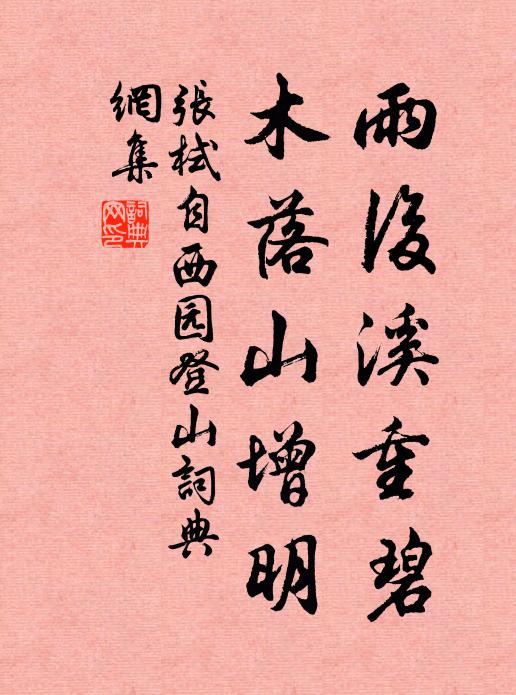 雨後溪重碧
木落山增明
張栻自西园登山詞典
網集
詞典網印